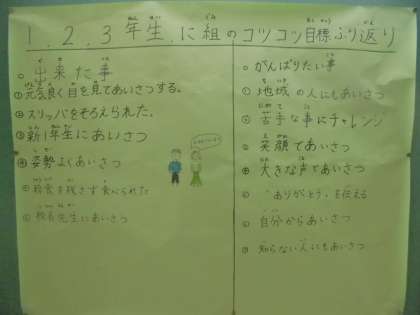 1.2.3年生.に組のコツコツ目標ふり返り
○出来た事
①元気良く目を見てあいさつする。
②スリッパをそろえられた。
③新1年生にあいさつ
④姿勢よくあいさつ
⑤給食を残さず食べられた
⑥校長先生にあいさつ
○がんばりたい事
①地域の人にもあいさつ
②苦手な事にチャレンジ
③笑顔であいさつ
④大きな声であいさつ
⑤「ありがとう」を伝える
⑥自分からあいさつ
⑦知らない人にもあいさつ